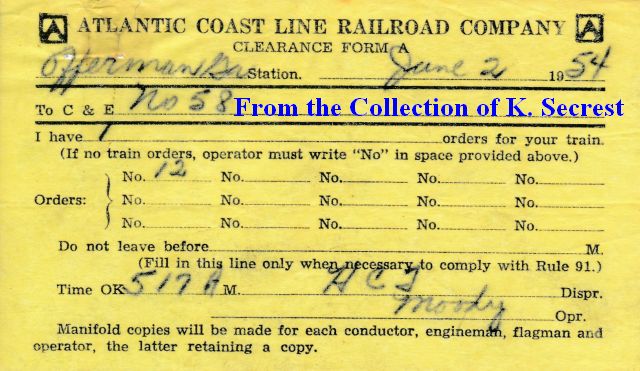 A ATLANTIC COAST LINE RAILROAD COMPANY A
CLEARANCE FORM A
Offerman Ga Station. June 2 1954
To C & E No 58 From the Collection of K. Secrest
I have 1 orders for your train.
(If no train orders, operator must write "No" in space provided above.)
No. 12 No. No. No. No.
Orders: No. No. No. No. No.
No. No. No. No. No.
Do not leave before M.
(Fill in this line only when necessary to comply with Rule 91.)
Time OK 517 A M. H C J Dispr.
Moody Opr.
Manifold copies will be made for each conductor, engineman, flagman and
operator, the latter retaining a copy.